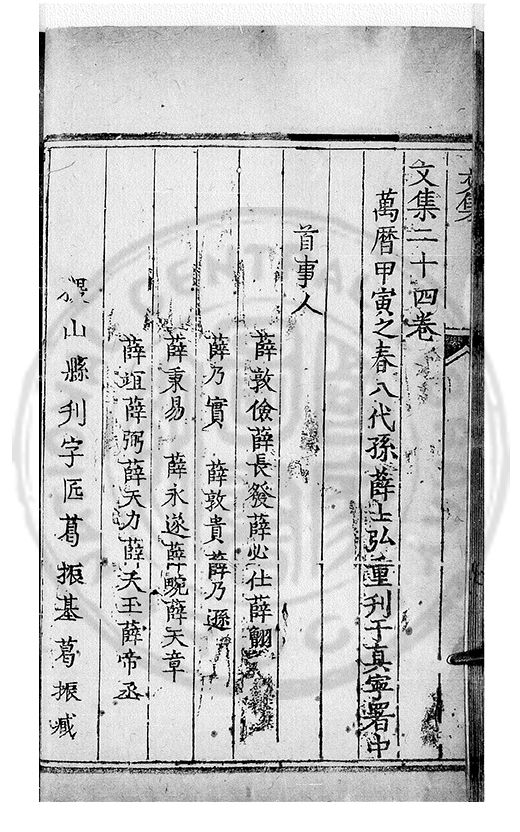 文集
文集二十四卷
萬曆甲寅之春八代孫薛士弘重刊于真寧署中
首事人
薛敦儉薛長發薛必仕薛翱
薛乃實 薛敦貴薛乃遜
薛秉易 薛永遂薛畹薛天章
薛竩薛弼薛天力薛天王薛帝丞
山縣刋字匠葛振基葛振